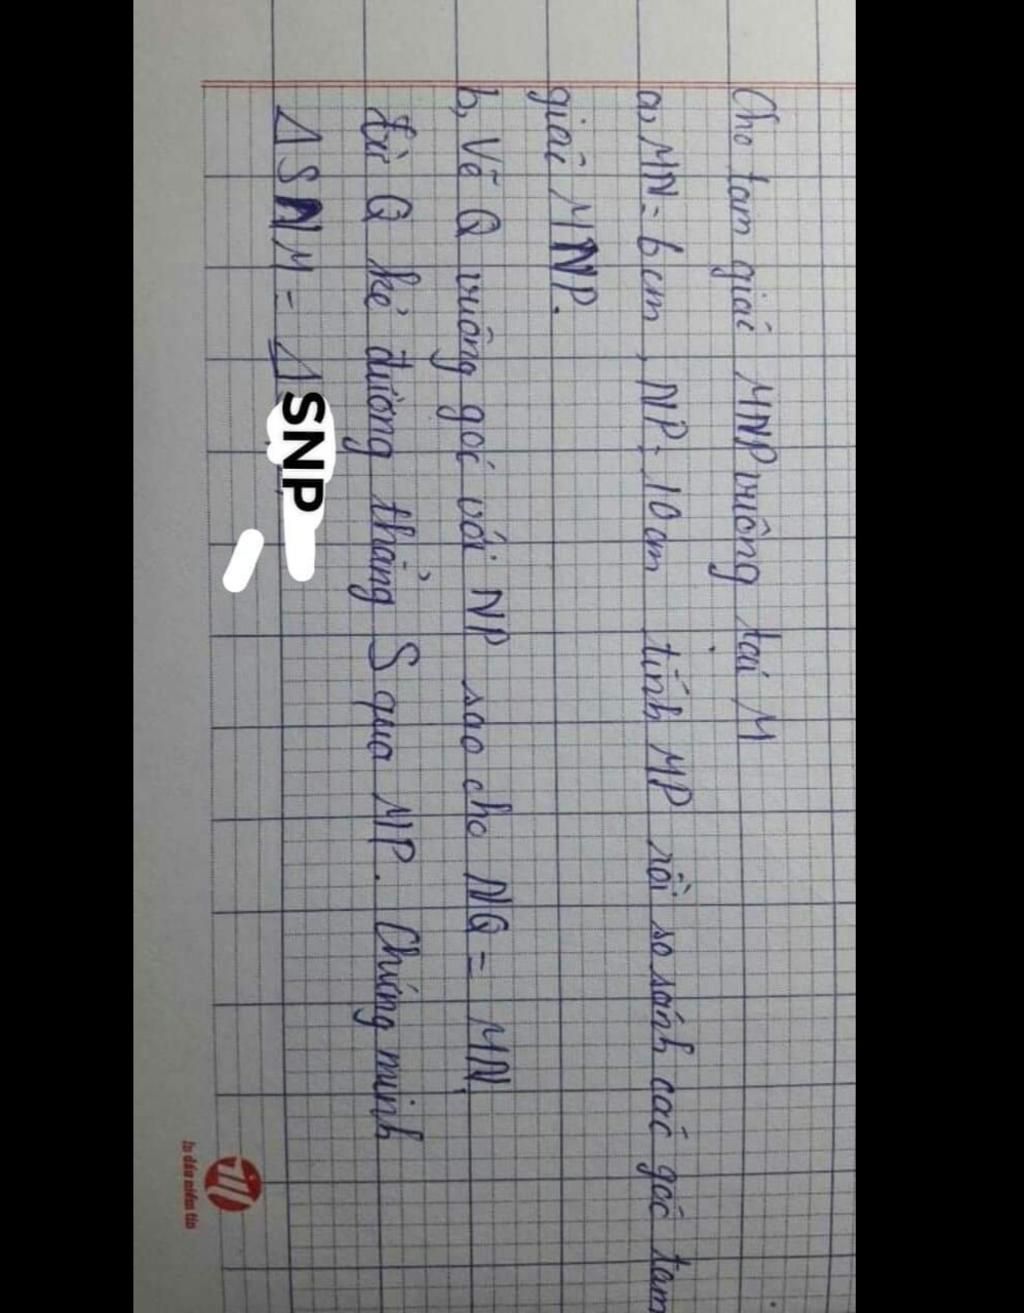 Cho tam giác MNP vuông tại M
a, MN = 6 cm, NP = 10 cm tính MP rồi so sánh các góc tam
giác MNP.
b, Vẽ Q vuông góc với NP sao cho NQ = MN,
từ Q kẻ đường thẳng S qua MP. Chứng minh
Δ SNM = Δ SNP
In dấu niềm tin